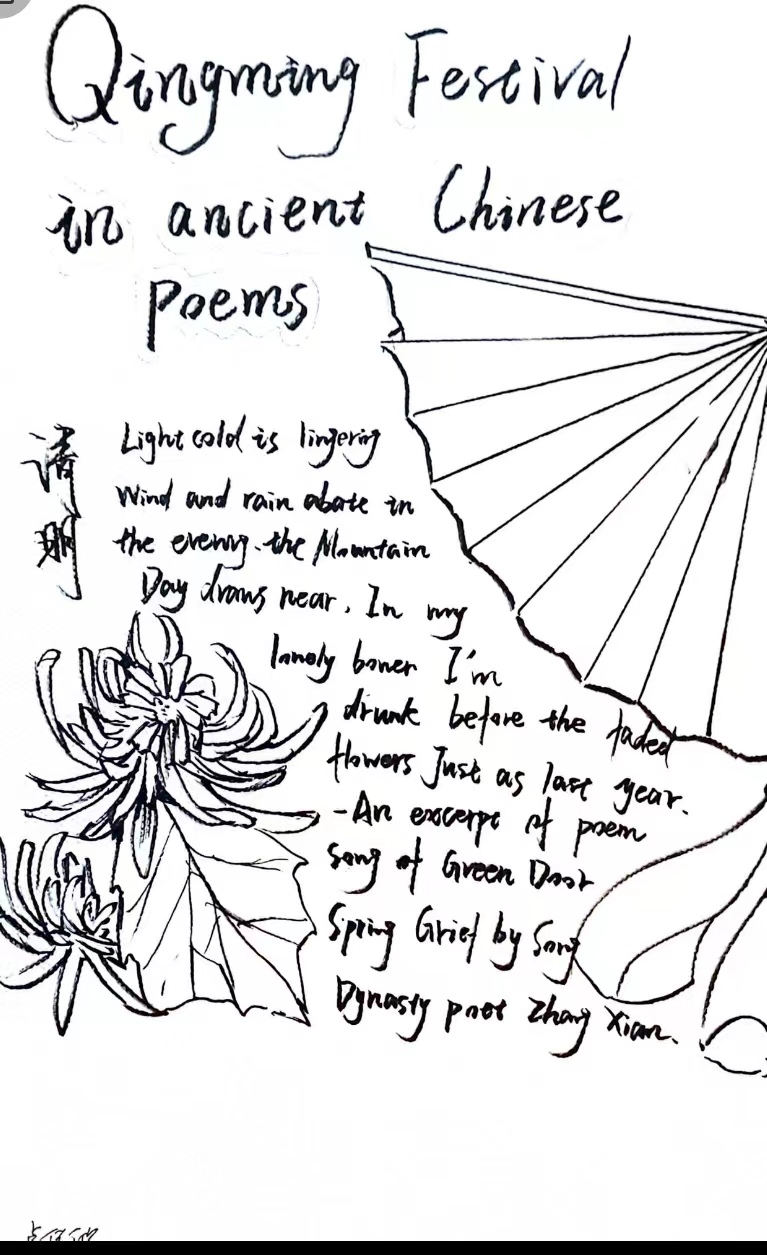 Qingming Festival
in ancient Chinese
Poems
清明
Light cold is lingering
Wind and rain abate in
the evening. the Mountain
Day draws near. In my
lonely bower I'm
drunk before the faded
flowers Just as last year.
-An excerpt of poem
Song of Green Door
Spring Grief by Song
Dynasty poet Zhang Xian.